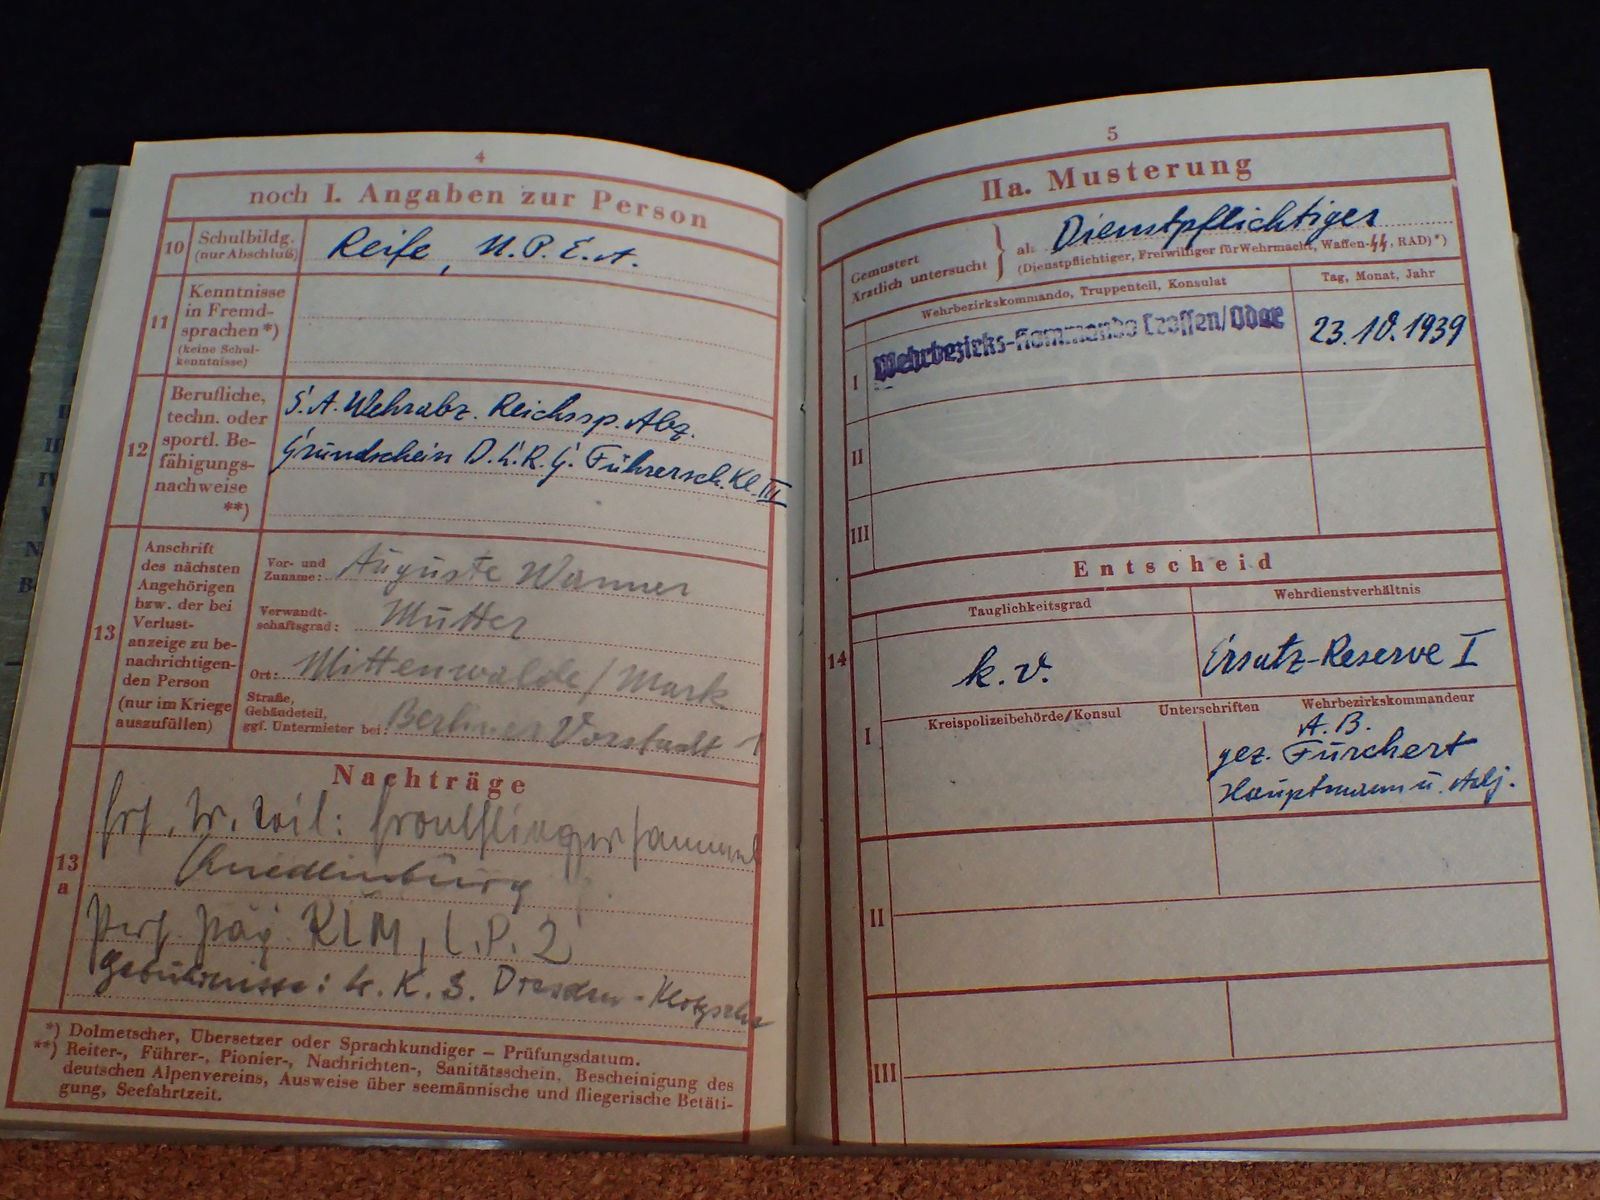 4
noch I. Angaben zur Person
10
Schulbildg.
(nur Abschluß)
Reife, N.P.E.A.
11
Kenntnisse
in Fremd-
sprachen *)
(keine Schul-
kenntnisse)
12
Berufliche,
techn. oder
sportl. Be-
fähigungs-
nachweise
**)
S.A. Wehrabz. Reichssp. Abz.
Grundschein D.L.R.G. Führersch. Kl. III
13
Anschrift
des nächsten
Angehörigen
bzw. der bei
Verlust-
anzeige zu be-
nachrichtigen-
den Person
(nur im Kriege
auszufüllen)
Vor- und
Zuname: Auguste Wanner
Verwandt-
schaftsgrad: Mutter
Ort: Mittenwalde / Mark
Straße,
Gebäudeteil,
ggf. Untermieter bei: Berliner Vorstadt 1
Nachträge
13
a
Quedlinburg
RLM, L.P. 2
Gebührnisse: L.K.S. Dresden-Klotzsche
*) Dolmetscher, Übersetzer oder Sprachkundiger – Prüfungsdatum.
**) Reiter-, Führer-, Pionier-, Nachrichten-, Sanitätsschein, Bescheinigung des
deutschen Alpenvereins, Ausweise über seemännische und fliegerische Betäti-
gung, Seefahrtzeit.
5
IIa. Musterung
Gemustert
Ärztlich untersucht
als Dienstpflichtiger
(Dienstpflichtiger, Freiwilliger für Wehrmacht, Waffen-SS, RAD)*)
Wehrbezirkskommando, Truppenteil, Konsulat
Tag, Monat, Jahr
I
Wehrbezirks-Kommando Crossen/Oder
23.10.1939
II
III
Entscheid
14
Tauglichkeitsgrad
Wehrdienstverhältnis
k.v.
Ersatz-Reserve I
I
Kreispolizeibehörde/Konsul Unterschriften Wehrbezirkskommandeur
A.B.
gez. Furchert
Hauptmann u. Adj.
II
III